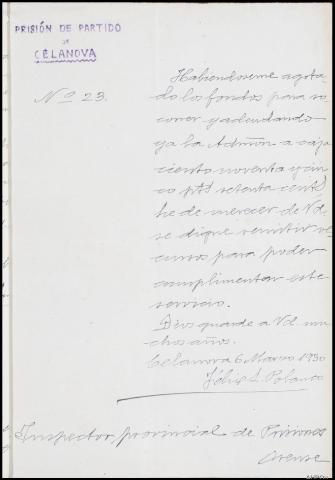 PRISIÓN DE PARTIDO
DE
CELANOVA
Nº 23.
Habiendoseme agota
do los fondos para so
correr y adeudando
ya la Admón a caja
ciento noventa y cin
co pts setenta cents
he de merecer de Vd.
se digne remitir re
cursos para poder
cumplimentar este
servicio.
Dios guarde a Vd. mu
chos años.
Celanova 6 Marzo 1930
Félix L. Polanco
Inspector, provincial de Prisiones
Orense